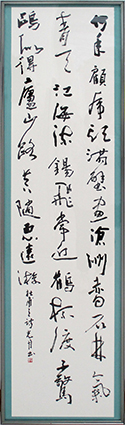 何年顧虎頭滿壁畫滄洲赤日石林氣
青天江海流錫飛常近鶴杯度不驚
鷗似得廬山路真隨惠遠遊
杜甫之詩